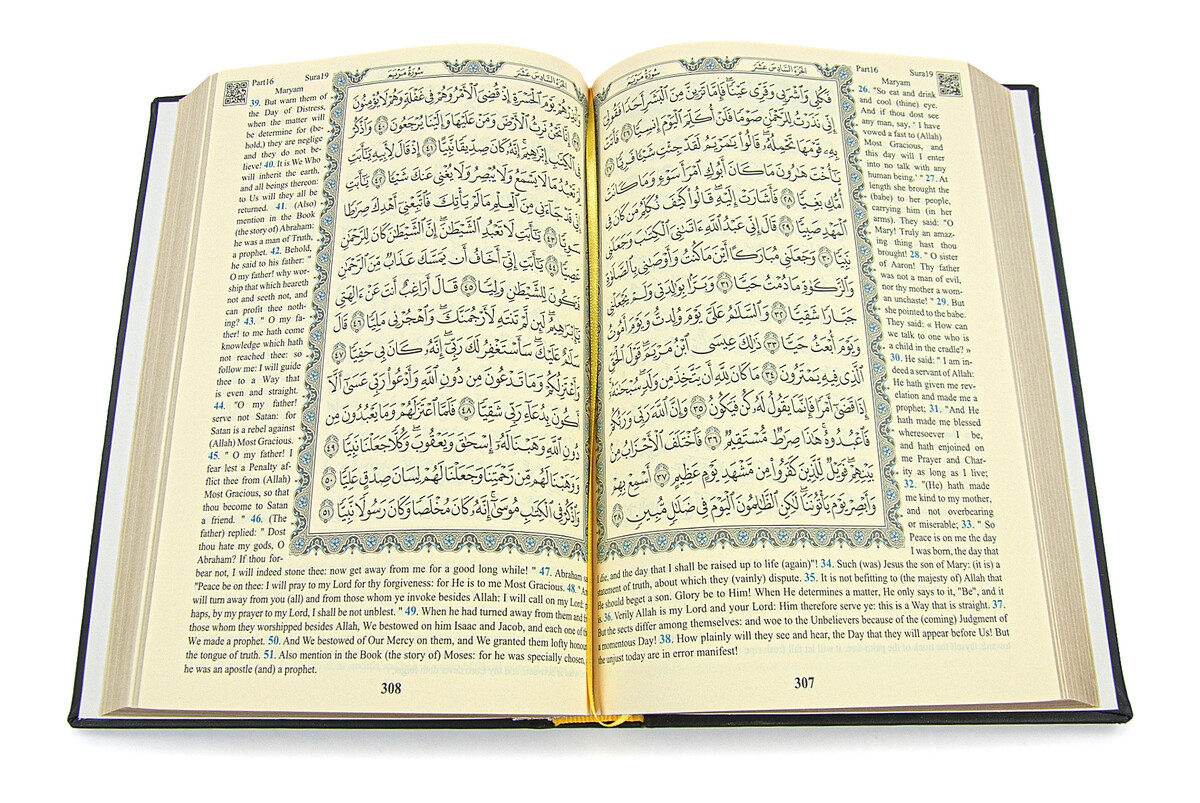 Part16 Sura19
Maryam
الجزء السادس عشر
سورة مريم
فَكُلِي وَاشْرَبِي وَقَرِّي عَيْنًا فَإِمَّا تَرَيِنَّ مِنَ الْبَشَرِ أَحَدًا فَقُولِي
إِنِّي نَذَرْتُ لِلرَّحْمَٰنِ صَوْمًا فَلَنْ أُكَلِّمَ الْيَوْمَ إِنسِيًّا ٢٦ فَأَتَتْ
بِهِ قَوْمَهَا تَحْمِلُهُ قَالُوا يَا مَرْيَمُ لَقَدْ جِئْتِ شَيْئًا فَرِيًّا ٢٧
يَا أُخْتَ هَارُونَ مَا كَانَ أَبُوكِ امْرَأَ سَوْءٍ وَمَا كَانَتْ
أُمُّكِ بَغِيًّا ٢٨ فَأَشَارَتْ إِلَيْهِ قَالُوا كَيْفَ نُكَلِّمُ مَن كَانَ فِي
الْمَهْدِ صَبِيًّا ٢٩ قَالَ إِنِّي عَبْدُ اللَّهِ آتَانِيَ الْكِتَابَ وَجَعَلَنِي
نَبِيًّا ٣٠ وَجَعَلَنِي مُبَارَكًا أَيْنَ مَا كُنتُ وَأَوْصَانِي بِالصَّلَاةِ
وَالزَّكَاةِ مَا دُمْتُ حَيًّا ٣١ وَبَرًّا بِوَالِدَتِي وَلَمْ يَجْعَلْنِي
جَبَّارًا شَقِيًّا ٣٢ وَالسَّلَامُ عَلَيَّ يَوْمَ وُلِدتُّ وَيَوْمَ أَمُوتُ
وَيَوْمَ أُبْعَثُ حَيًّا ٣٣ ذَٰلِكَ عِيسَى ابْنُ مَرْيَمَ قَوْلَ الْحَقِّ
الَّذِي فِيهِ يَمْتَرُونَ ٣٤ مَا كَانَ لِلَّهِ أَن يَتَّخِذَ مِن وَلَدٍ سُبْحَانَهُ
إِذَا قَضَىٰ أَمْرًا فَإِنَّمَا يَقُولُ لَهُ كُن فَيَكُونُ ٣٥ وَإِنَّ اللَّهَ رَبِّي وَرَبُّكُمْ
فَاعْبُدُوهُ هَٰذَا صِرَاطٌ مُّسْتَقِيمٌ ٣٦ فَاخْتَلَفَ الْأَحْزَابُ مِن
بَيْنِهِمْ فَوَيْلٌ لِّلَّذِينَ كَفَرُوا مِن مَّشْهَدِ يَوْمٍ عَظِيمٍ ٣٧ أَسْمِعْ بِهِمْ
وَأَبْصِرْ يَوْمَ يَأْتُونَنَا لَٰكِنِ الظَّالِمُونَ الْيَوْمَ فِي ضَلَالٍ مُّبِينٍ ٣٨
26. "So eat and drink
and cool (thine) eye.
And if thou dost see
any man, say, ' I have
vowed a fast to (Allah)
Most Gracious, and
this day will I enter
into no talk with any
human being.' " 27. At
length she brought the
(babe) to her people,
carrying him (in her
arms). They said: "O
Mary! Truly an amaz-
ing thing hast thou
brought! 28. " O sister
of Aaron! Thy father
was not a man of evil,
nor thy mother a wom-
an unchaste! " 29. But
she pointed to the babe.
They said: « How can
we talk to one who is
a child in the cradle? »
30. He said: " I am in-
deed a servant of Allah:
He hath given me rev-
elation and made me a
prophet; 31. "And He
hath made me blessed
wheresoever I be,
and hath enjoined on
me Prayer and Char-
ity as long as I live;
32. "(He) hath made
me kind to my mother,
and not overbearing
or miserable; 33. " So
Peace is on me the day
I was born, the day that
I die, and the day that I shall be raised up to life (again)"! 34. Such (was) Jesus the son of Mary: (it is) a
statement of truth, about which they (vainly) dispute. 35. It is not befitting to (the majesty of) Allah that
He should beget a son. Glory be to Him! When He determines a matter, He only says to it, "Be", and it
is. 36. Verily Allah is my Lord and your Lord: Him therefore serve ye: this is a Way that is straight. 37.
But the sects differ among themselves: and woe to the Unbelievers because of the (coming) Judgment of
a momentous Day! 38. How plainly will they see and hear, the Day that they will appear before Us! But
the unjust today are in error manifest!
307
Part16 Sura19
Maryam
الجزء السادس عشر
سورة مريم
وَأَنذِرْهُمْ يَوْمَ الْحَسْرَةِ إِذْ قُضِيَ الْأَمْرُ وَهُمْ فِي غَفْلَةٍ وَهُمْ لَا يُؤْمِنُونَ
٣٩ إِنَّا نَحْنُ نَرِثُ الْأَرْضَ وَمَنْ عَلَيْهَا وَإِلَيْنَا يُرْجَعُونَ ٤٠ وَاذْكُرْ
فِي الْكِتَابِ إِبْرَاهِيمَ إِنَّهُ كَانَ صِدِّيقًا نَّبِيًّا ٤١ إِذْ قَالَ لِأَبِيهِ يَا أَبَتِ
لِمَ تَعْبُدُ مَا لَا يَسْمَعُ وَلَا يُبْصِرُ وَلَا يُغْنِي عَنكَ شَيْئًا ٤٢ يَا أَبَتِ
إِنِّي قَدْ جَاءَنِي مِنَ الْعِلْمِ مَا لَمْ يَأْتِكَ فَاتَّبِعْنِي أَهْدِكَ صِرَاطًا
سَوِيًّا ٤٣ يَا أَبَتِ لَا تَعْبُدِ الشَّيْطَانَ إِنَّ الشَّيْطَانَ كَانَ لِلرَّحْمَٰنِ
عَصِيًّا ٤٤ يَا أَبَتِ إِنِّي أَخَافُ أَن يَمَسَّكَ عَذَابٌ مِّنَ الرَّحْمَٰنِ
فَتَكُونَ لِلشَّيْطَانِ وَلِيًّا ٤٥ قَالَ أَرَاغِبٌ أَنتَ عَنْ آلِهَتِي
يَا إِبْرَاهِيمُ لَئِن لَّمْ تَنتَهِ لَأَرْجُمَنَّكَ وَاهْجُرْنِي مَلِيًّا ٤٦ قَالَ
سَلَامٌ عَلَيْكَ سَأَسْتَغْفِرُ لَكَ رَبِّي إِنَّهُ كَانَ بِي حَفِيًّا ٤٧
وَأَعْتَزِلُكُمْ وَمَا تَدْعُونَ مِن دُونِ اللَّهِ وَأَدْعُو رَبِّي عَسَىٰ أَلَّا
أَكُونَ بِدُعَاءِ رَبِّي شَقِيًّا ٤٨ فَلَمَّا اعْتَزَلَهُمْ وَمَا يَعْبُدُونَ مِن
دُونِ اللَّهِ وَهَبْنَا لَهُ إِسْحَاقَ وَيَعْقُوبَ وَكُلًّا جَعَلْنَا نَبِيًّا ٤٩
وَوَهَبْنَا لَهُم مِّن رَّحْمَتِنَا وَجَعَلْنَا لَهُمْ لِسَانَ صِدْقٍ عَلِيًّا ٥٠
وَاذْكُرْ فِي الْكِتَابِ مُوسَىٰ إِنَّهُ كَانَ مُخْلَصًا وَكَانَ رَسُولًا نَّبِيًّا ٥١
39. But warn them of
the Day of Distress,
when the matter will
be determine for (be-
hold,) they are neglige
and they do not be-
lieve! 40. It is We Who
will inherit the earth,
and all beings thereon:
to Us will they all be
returned. 41. (Also)
mention in the Book
(the story of) Abraham:
he was a man of Truth,
a prophet. 42. Behold,
he said to his father: "
O my father! why wor-
ship that which heareth
not and seeth not, and
can profit thee noth-
ing? 43. " O my fa-
ther! to me hath come
knowledge which hath
not reached thee: so
follow me: I will guide
thee to a Way that
is even and straight.
44. "O my father!
serve not Satan: for
Satan is a rebel against
(Allah) Most Gracious.
45. " O my father! I
fear lest a Penalty af-
flict thee from (Allah)
Most Gracious, so that
thou become to Satan
a friend. " 46. (The
father) replied: " Dost
thou hate my gods, O
Abraham? If thou for-
bear not, I will indeed stone thee: now get away from me for a good long while! " 47. Abraham
"Peace be on thee: I will pray to my Lord for thy forgiveness: for He is to me Most Gracious. 48. "
will turn away from you (all) and from those whom ye invoke besides Allah: I will call on my Lord:
haps, by my prayer to my Lord, I shall be not unblest. " 49. When he had turned away from them and
those whom they worshipped besides Allah, We bestowed on him Isaac and Jacob, and each one of
We made a prophet. 50. And We bestowed of Our Mercy on them, and We granted them lofty
the tongue of truth. 51. Also mention in the Book (the story of) Moses: for he was specially chosen,
he was an apostle (and) a prophet.
308